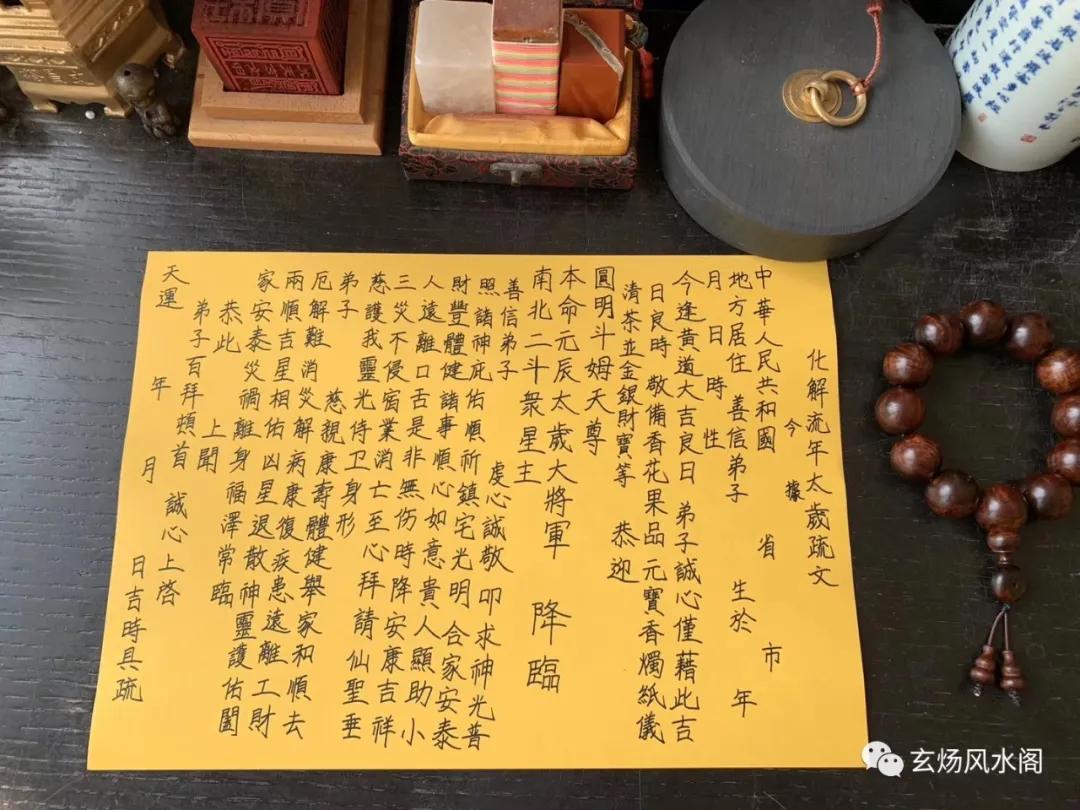 化解流年太歲疏文
今據
中華人民共和國 省 市
地方居住 善信弟子 生於 年
月 日 時 性
今逢黃道大吉良日 弟子誠心僅藉此吉
日良時 敬備香花果品元寶香燭紙儀
清茶並金銀財寶等 恭迎
圓明斗姆天尊
本命元辰太歲大將軍 降臨
南北二斗衆星主
善信弟子 虔心誠敬 叩求神光普
照諸神庇佑順祈鎮宅光明合家安泰
財豐體健諸事順心如意貴人顯助小
人遠離口舌是非無伤時降安康吉祥
三災不侵宿業消亡至心拜請仙聖垂
慈護我靈光侍卫身形
弟子 慈親康壽體健舉家和順去
厄解難消災解病康復疾患遠離工財
兩順吉星相佑凶星退散神靈護佑闔
家安泰災禍離身福澤常臨
恭此 上聞
弟子百拜頓首 誠心上啓
天運 年 月 日吉時具疏
玄炀风水阁